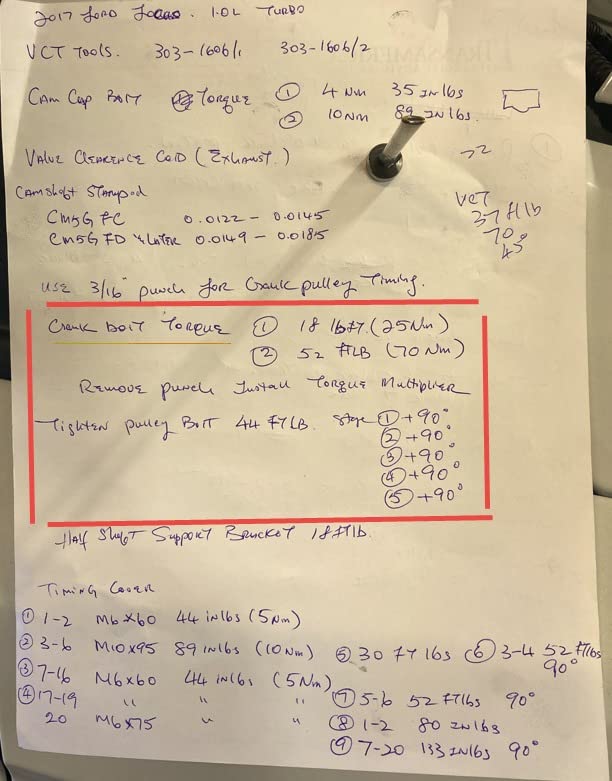 2017 FORD Focus. 1.0L TURBO
VCT TOOLS. 303-1606/1 303-1606/2
CAM CAP BOLT TORQUE ① 4 NM 35 INlbs
② 10NM 89 INlbs.
VALVE CLEARENCE COLD (EXHAUST.)
22
CAMShaft Stamped
VCT
CM5G FC 0.0122 - 0.0145
37 ftlb
CM5G FD & LATER 0.0149 - 0.0185
70
45
USE 3/16" punch for Crank pulley Timing.
Crank BOLT TORQUE ① 18 lbft. (25Nm)
② 52 FTLB (70 Nm)
REMOVE punch Install TORQUE Multiplier
Tighten pulley BOLT 44 FTLB. Stage ① +90°
② +90°
③ +90°
④ +90°
⑤ +90°
Half Shaft Support Bracket 18 ftlb.
TIMING COVER
① 1-2 M6x60 44 inlbs (5Nm)
② 3-6 M10x95 89 inlbs (10Nm) ⑤ 30 FT lbs ⑥ 3-4 52 ftlbs
90°
③ 7-16 M6x60 44 inlbs (5Nm)
④ 17-19 " " " ⑦ 5-6 52 FTlbs 90°
20 M6x75 " " ⑧ 1-2 80 INlbs
⑨ 7-20 133 INlbs 90°